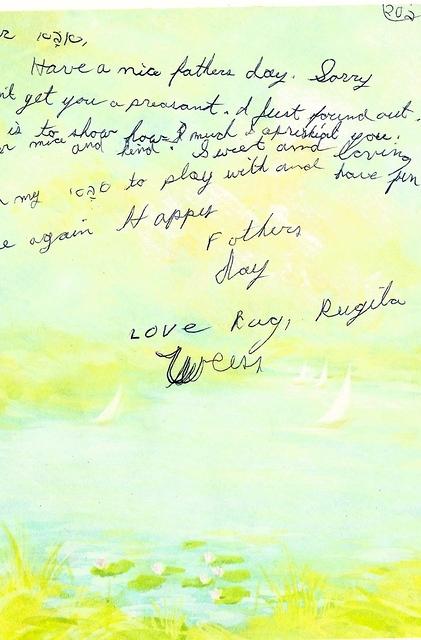 Have a nice fathers day. Sorry
get you a preasant. I just found out.
is to show how much I apriskiat you.
nice and kind. Sweet and loving
my סבא to play with and have fun
again Happy
Fathers
day
LOVE Rug, Rugila